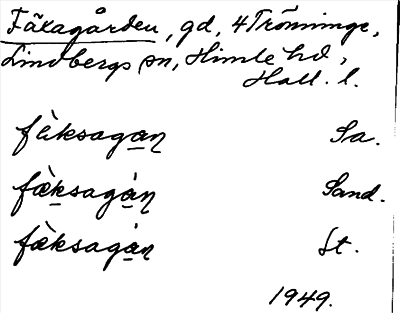 Fäxagården, gd, 4 Trönninge,
Lindbergs sn, Himle hd,
Hall. l.
fὲksagaɲ Sa.
fæ̀ksagàɲ Sand.
fæ̀ksagàɲ St.
1949.